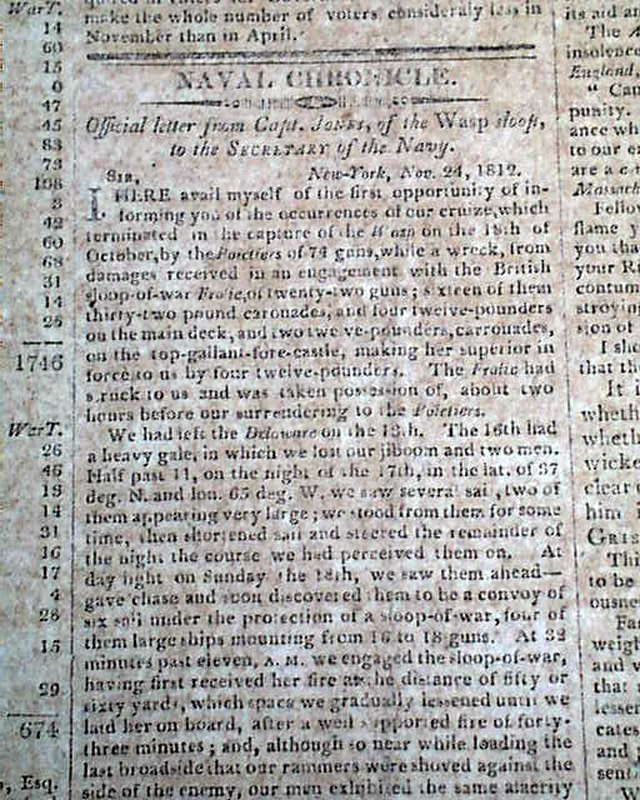 make the whole number of voters consideraly less in
November than in April.
NAVAL CHRONICLE.
Official letter from Capt. JONES, of the Wasp sloop,
to the SECRETARY of the Navy.
SIR, New-York, Nov. 24, 1812.
I HERE avail myself of the first opportunity of in-
forming you of the occurrences of our cruize, which
terminated in the capture of the Wasp on the 18th of
October, by the Poictiers of 74 guns, while a wreck, from
damages received in an engagement with the British
sloop-of-war Frolic, of twenty-two guns; sixteen of them
thirty-two pound caronades, and four twelve-pounders
on the main deck, and two twelve-pounders, carronades,
on the top-gallant-fore-castle, making her superior in
force to us by four twelve-pounders. The Frolic had
struck to us and was taken possession of, about two
hours before our surrendering to the Poictiers.
We had left the Delaware on the 13th. The 16th had
a heavy gale, in which we lost our jiboom and two men.
Half past 11, on the night of the 17th, in the lat. of 37
deg. N. and lon. 65 deg. W. we saw several sail, two of
them appearing very large; we stood from them for some
time, then shortened sail and steered the remainder of
the night the course we had perceived them on. At
day light on Sunday the 18th, we saw them ahead—
gave chase and soon discovered them to be a convoy of
six sail under the protection of a sloop-of-war, four of
them large ships mounting from 16 to 18 guns. At 32
minutes past eleven, A. M. we engaged the sloop-of-war,
having first received her fire at the distance of fifty or
sixty yards, which space we gradually lessened until we
laid her on board, after a well supported fire of forty-
three minutes; and, although so near while loading the
last broadside that our rammers were shoved against the
side of the enemy, our men exhibited the same alacrity
WarT.
14
60
15
0
47
45
83
73
108
8
42
60
68
31
14
26
1746
WarT.
26
46
19
14
31
16
17
4
28
15
29
674
Esq.
its aid
The
insolence
England,
" Can
punity.
ance
to our
are a
Massach
Fello
flame y
you tha
your Ri
contum
stroyin
sion of
I she
that the
It
wheth
wheth
wicke
clear
him
GRIS
Thi
to be
ousne
Fa
weigt
and
that
lesser
cates
and
sent
W